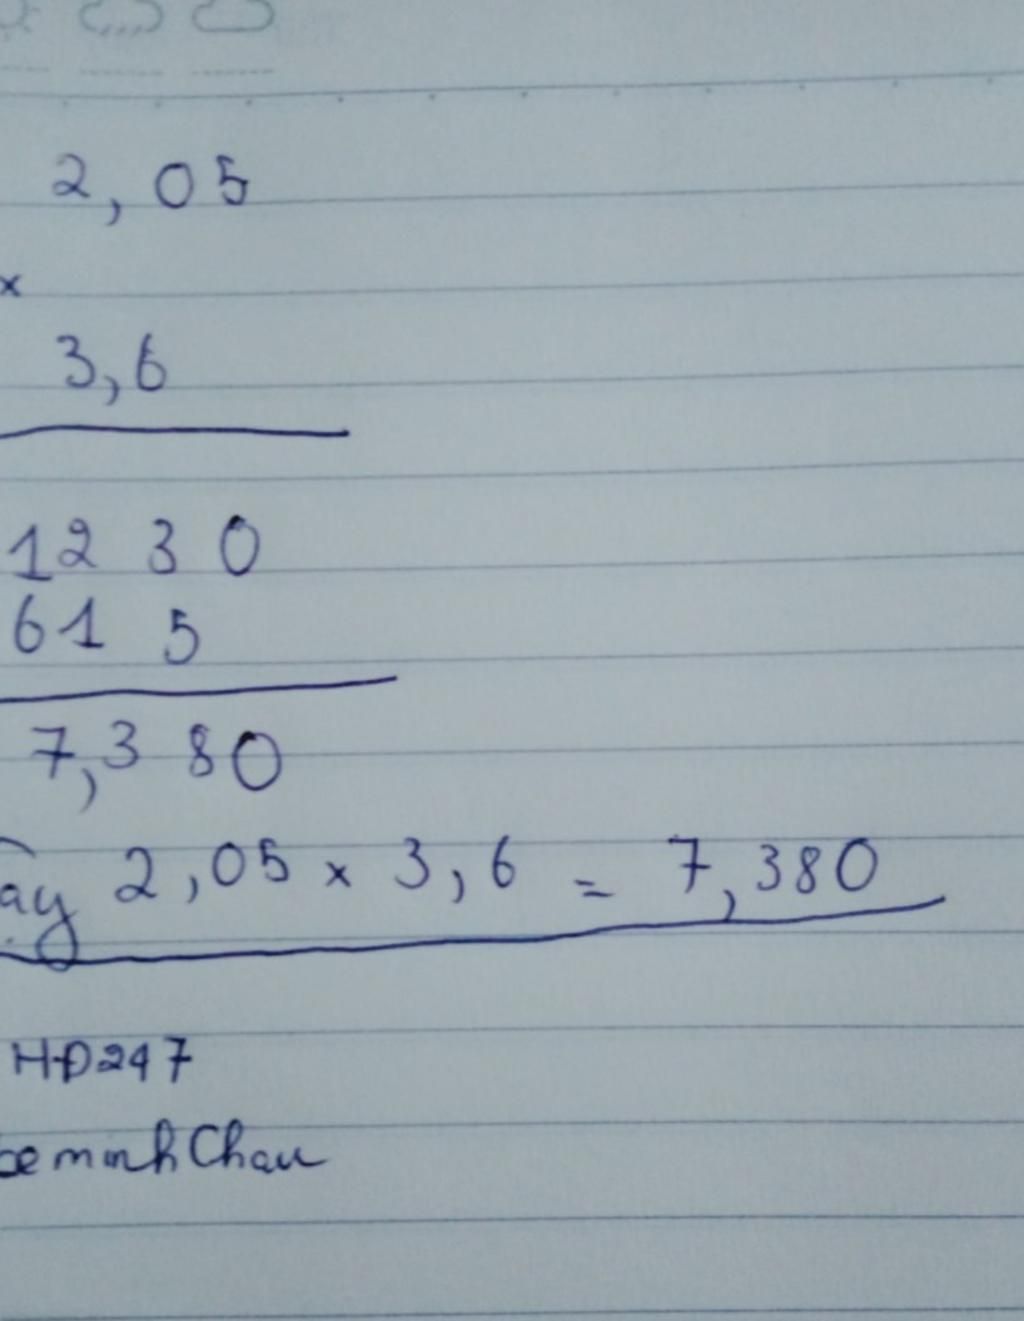 2,05
x
3,6
1230
615
7,380
ay 2,05 x 3,6 = 7,380
HĐ247
be minh Chau